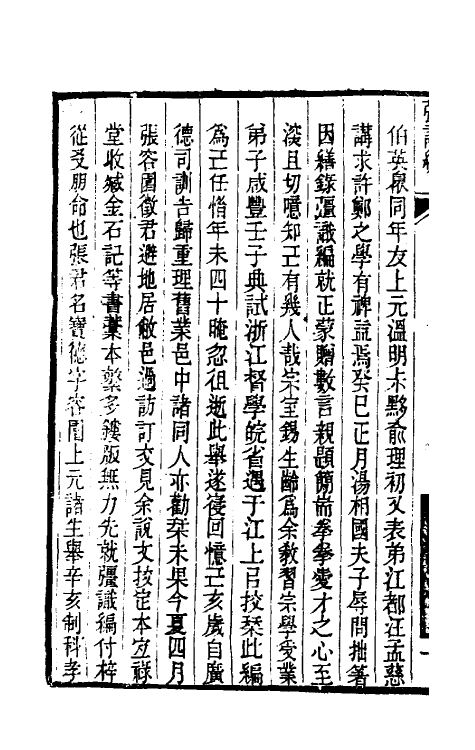 伯英舉同年友上元溫明尗黟俞理初又表弟江都汪孟慈
講求許鄭之學有裨益焉癸巳正月湯相國夫子辱問拙著
因繕錄彊識編就正蒙贈數言親題簡耑拳拳愛才之心至
深且切噫知己有幾人哉宗室錫生齡爲余敎習宗學受業
弟子咸豐壬子典試浙江督學皖省遇于江上㠯挍栞此編
爲己任惜年未四十晻忽徂逝此舉遂寑回憶己亥歲自廣
德司訓告歸重理舊業邑中諸同人亦勸栞未果今夏四月
張容園徵君避地居敝邑過訪訂交見余說文挍定本宐祿
堂收臧金石記等書藁本繁多鏤版無力先就彊識編付梓
從叐朋命也張君名寶德字容園上元諸生舉辛亥制科孝